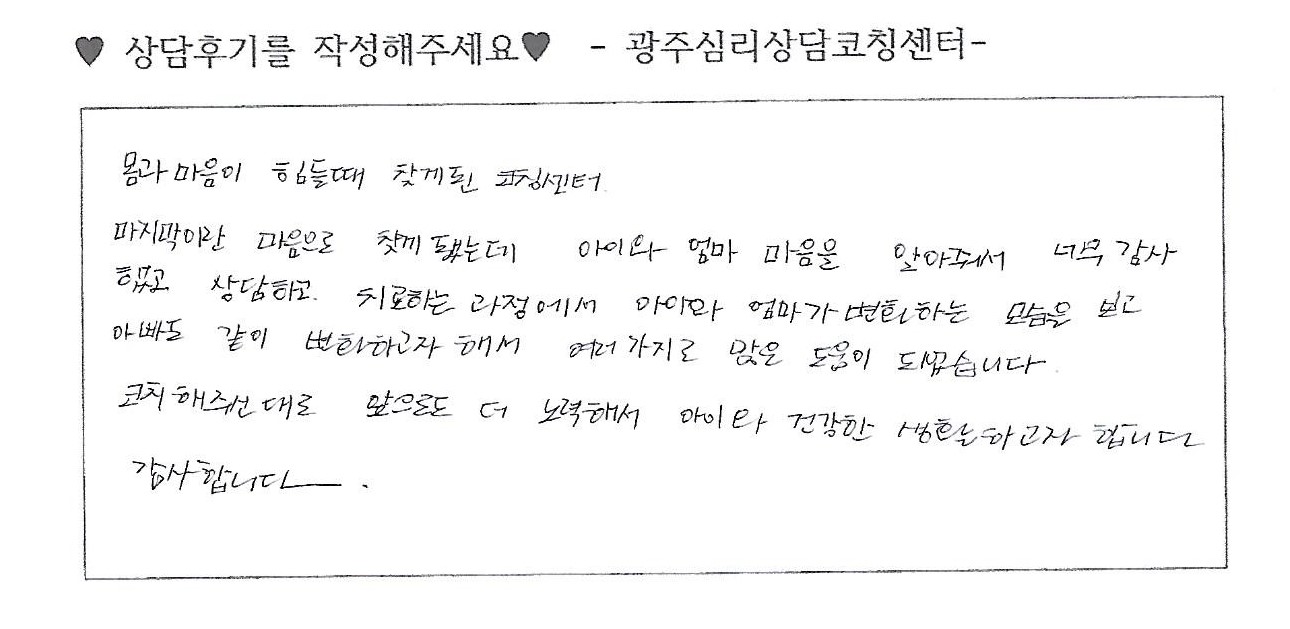 ♥ 상담후기를 작성해주세요♥ - 광주심리상담코칭센터-
몸과 마음이 힘들때 찾게된 코칭센터.
마지막이란 마음으로 찾게 됐는데 아이와 엄마 마음을 알아줘서 너무 감사
했고 상담하고 치료하는 과정에서 아이와 엄마가 변화하는 모습을 보고
아빠도 같이 변화하고자 해서 여러가지로 많은 도움이 되었습니다.
코치해주신대로 앞으로도 더 노력해서 아이와 건강한 생활하고자 합니다
감사합니다.